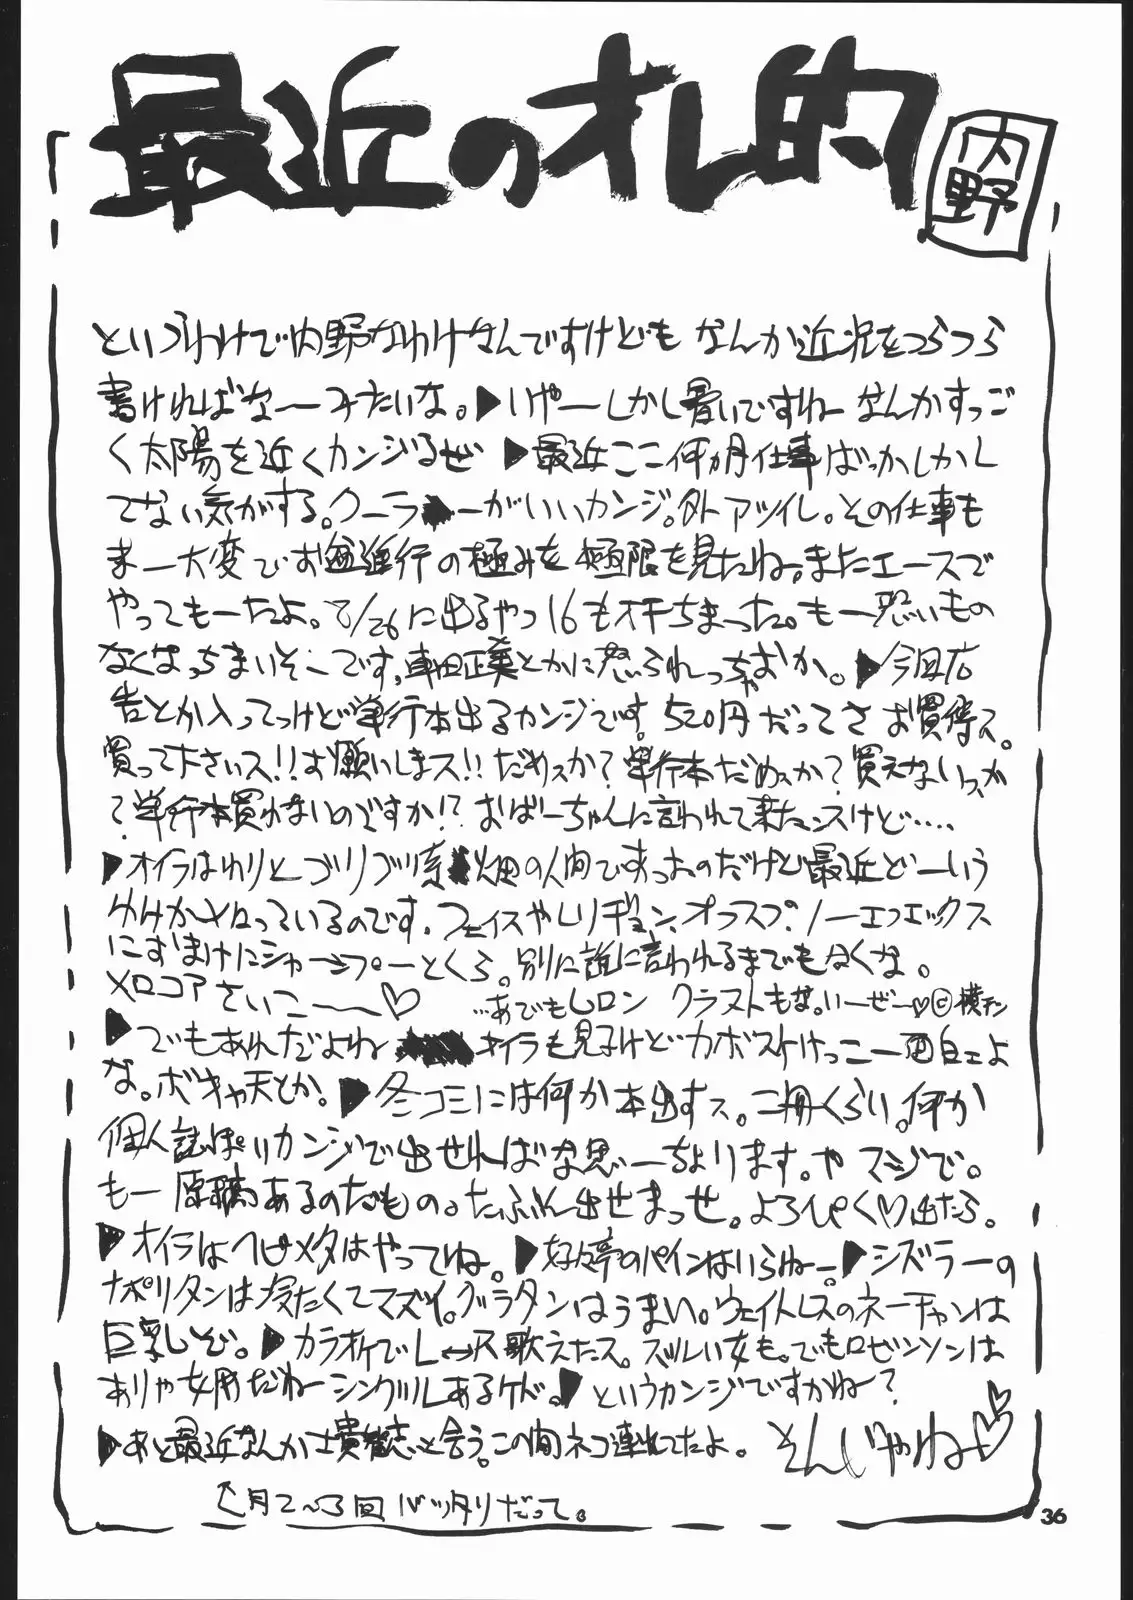 最近のオレ的
内野
というわけで内野なわけなんですけども なんか近況をつらつら
書ければな〜みたいな。▶いやーしかし暑いですねー なんかすっご
く太陽を近くカンジるぜ ▶最近ここ何ヵ月仕事ばっかしかし
てない気がする。クーラーがいいカンジ。外アツイし。その仕事も
まー大変でお進行の極みを極限を見たね。またエースで
やってもーたよ。8/26に出るやつ16もオチちまった。もー恐いもの
なくなっちまいそーです。車田正美とかに怒られっちゃおか。▶今回広
告とか入ってっけど単行本出るカンジです。520円だってさ お買得ス。
買って下さいス!!お願いしまス!!だめっか?単行本だめっか?買えないっスか
?単行本買わないのですか!?おばーちゃんに言われて来たンスけど‥‥
▶オイラはわりとゴリゴリ系畑の人間であったのだけど最近どーいう
わけかメロっているのです。フェイスやレリジョン、オフスプ、ノーエフエックス
におまけにシャーンプーとくら。別に誰に言われるまでもなくな。
メロコアさいこ〜〜♡ …あでもLロン クラストもな。いーぜー♡©横チン
▶でもあれだよね オイラも見子けどカボスけっこー面白ェよ
な。ボキャ天とか。▶冬コミには何か本出すス。二冊くらい。何か
個人誌ぽいカンジで出せればな思ーちょります。や マジで。
もー原稿あるのだもの。たぶん出せまっせ。よろぴく♡出たら。
▶オイラはヘビメタはやってね。▶好々亭のパインはいらねー。▶シズラーの
ナポリタンは冷たくてマズイ。グラタンはうまい。ウェイトレスのネーチャンは
巨乳しぞ。▶カラオケでL↔R歌えたス。ズルい女も。でもロビンソンは
ありゃ女用だねーシングルあるケド。▶というカンジですかねー?
▶あと最近なんか士貴智志と会う。この間ネコ連れてたよ。
そんじゃねー♡
↑月2〜3回バッタリだって。
36